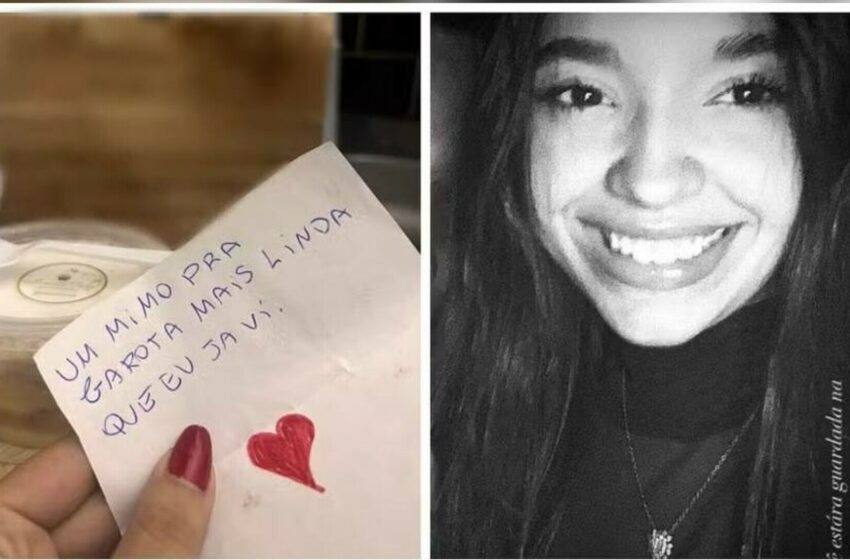 UM MIMO PRA
GAROTA MAIS LINDA
QUE EU JA VI.
estára guardada na